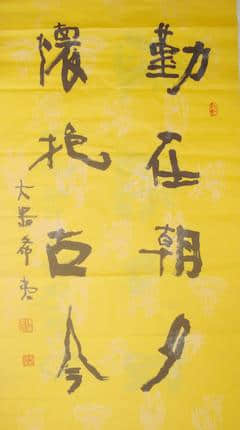 勤在朝夕
懷抱古今
大器希夷